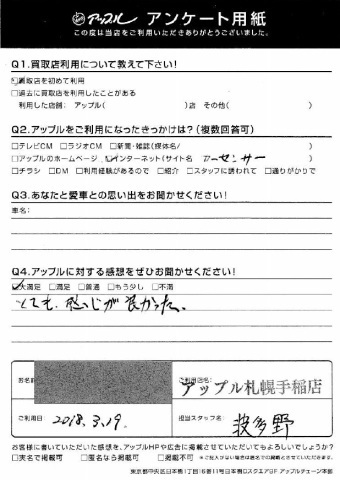 アップル アンケート用紙
この度は当店をご利用いただきありがとうございました。
Q1.買取店利用について教えて下さい!
☑買取店を初めて利用
□過去に買取店を利用したことがある
利用した店舗: アップル( )店 その他( )
Q2.アップルをご利用になったきっかけは?(複数回答可)
□テレビCM □ラジオCM □新聞・雑誌(媒体名/ )
□アップルのホームページ ☑インターネット(サイト名 カーセンサー )
□チラシ □DM □利用経験があるので □紹介 □スタッフに誘われて □通りがかりで
Q3.あなたと愛車との思い出をお聞かせください!
車名:
Q4.アップルに対する感想をぜひお聞かせください!
☑大満足 □満足 □普通 □もう少し □不満
とても、感じが良かった。
お名前
ご利用店名: アップル札幌手稲店
ご利用日: 2018.3.19.
担当スタッフ名: 波多野
お客様に書いていただいた感想を、アップルHPや広告に掲載させていただいてもよろしいでしょうか?
□実名で掲載可 □匿名なら掲載可 □掲載不可 ※ご記入がない場合は匿名での掲載とさせていただきます。
東京都中央区日本橋1丁目16番11号日本橋ロスクエア6F アップルチェーン本部